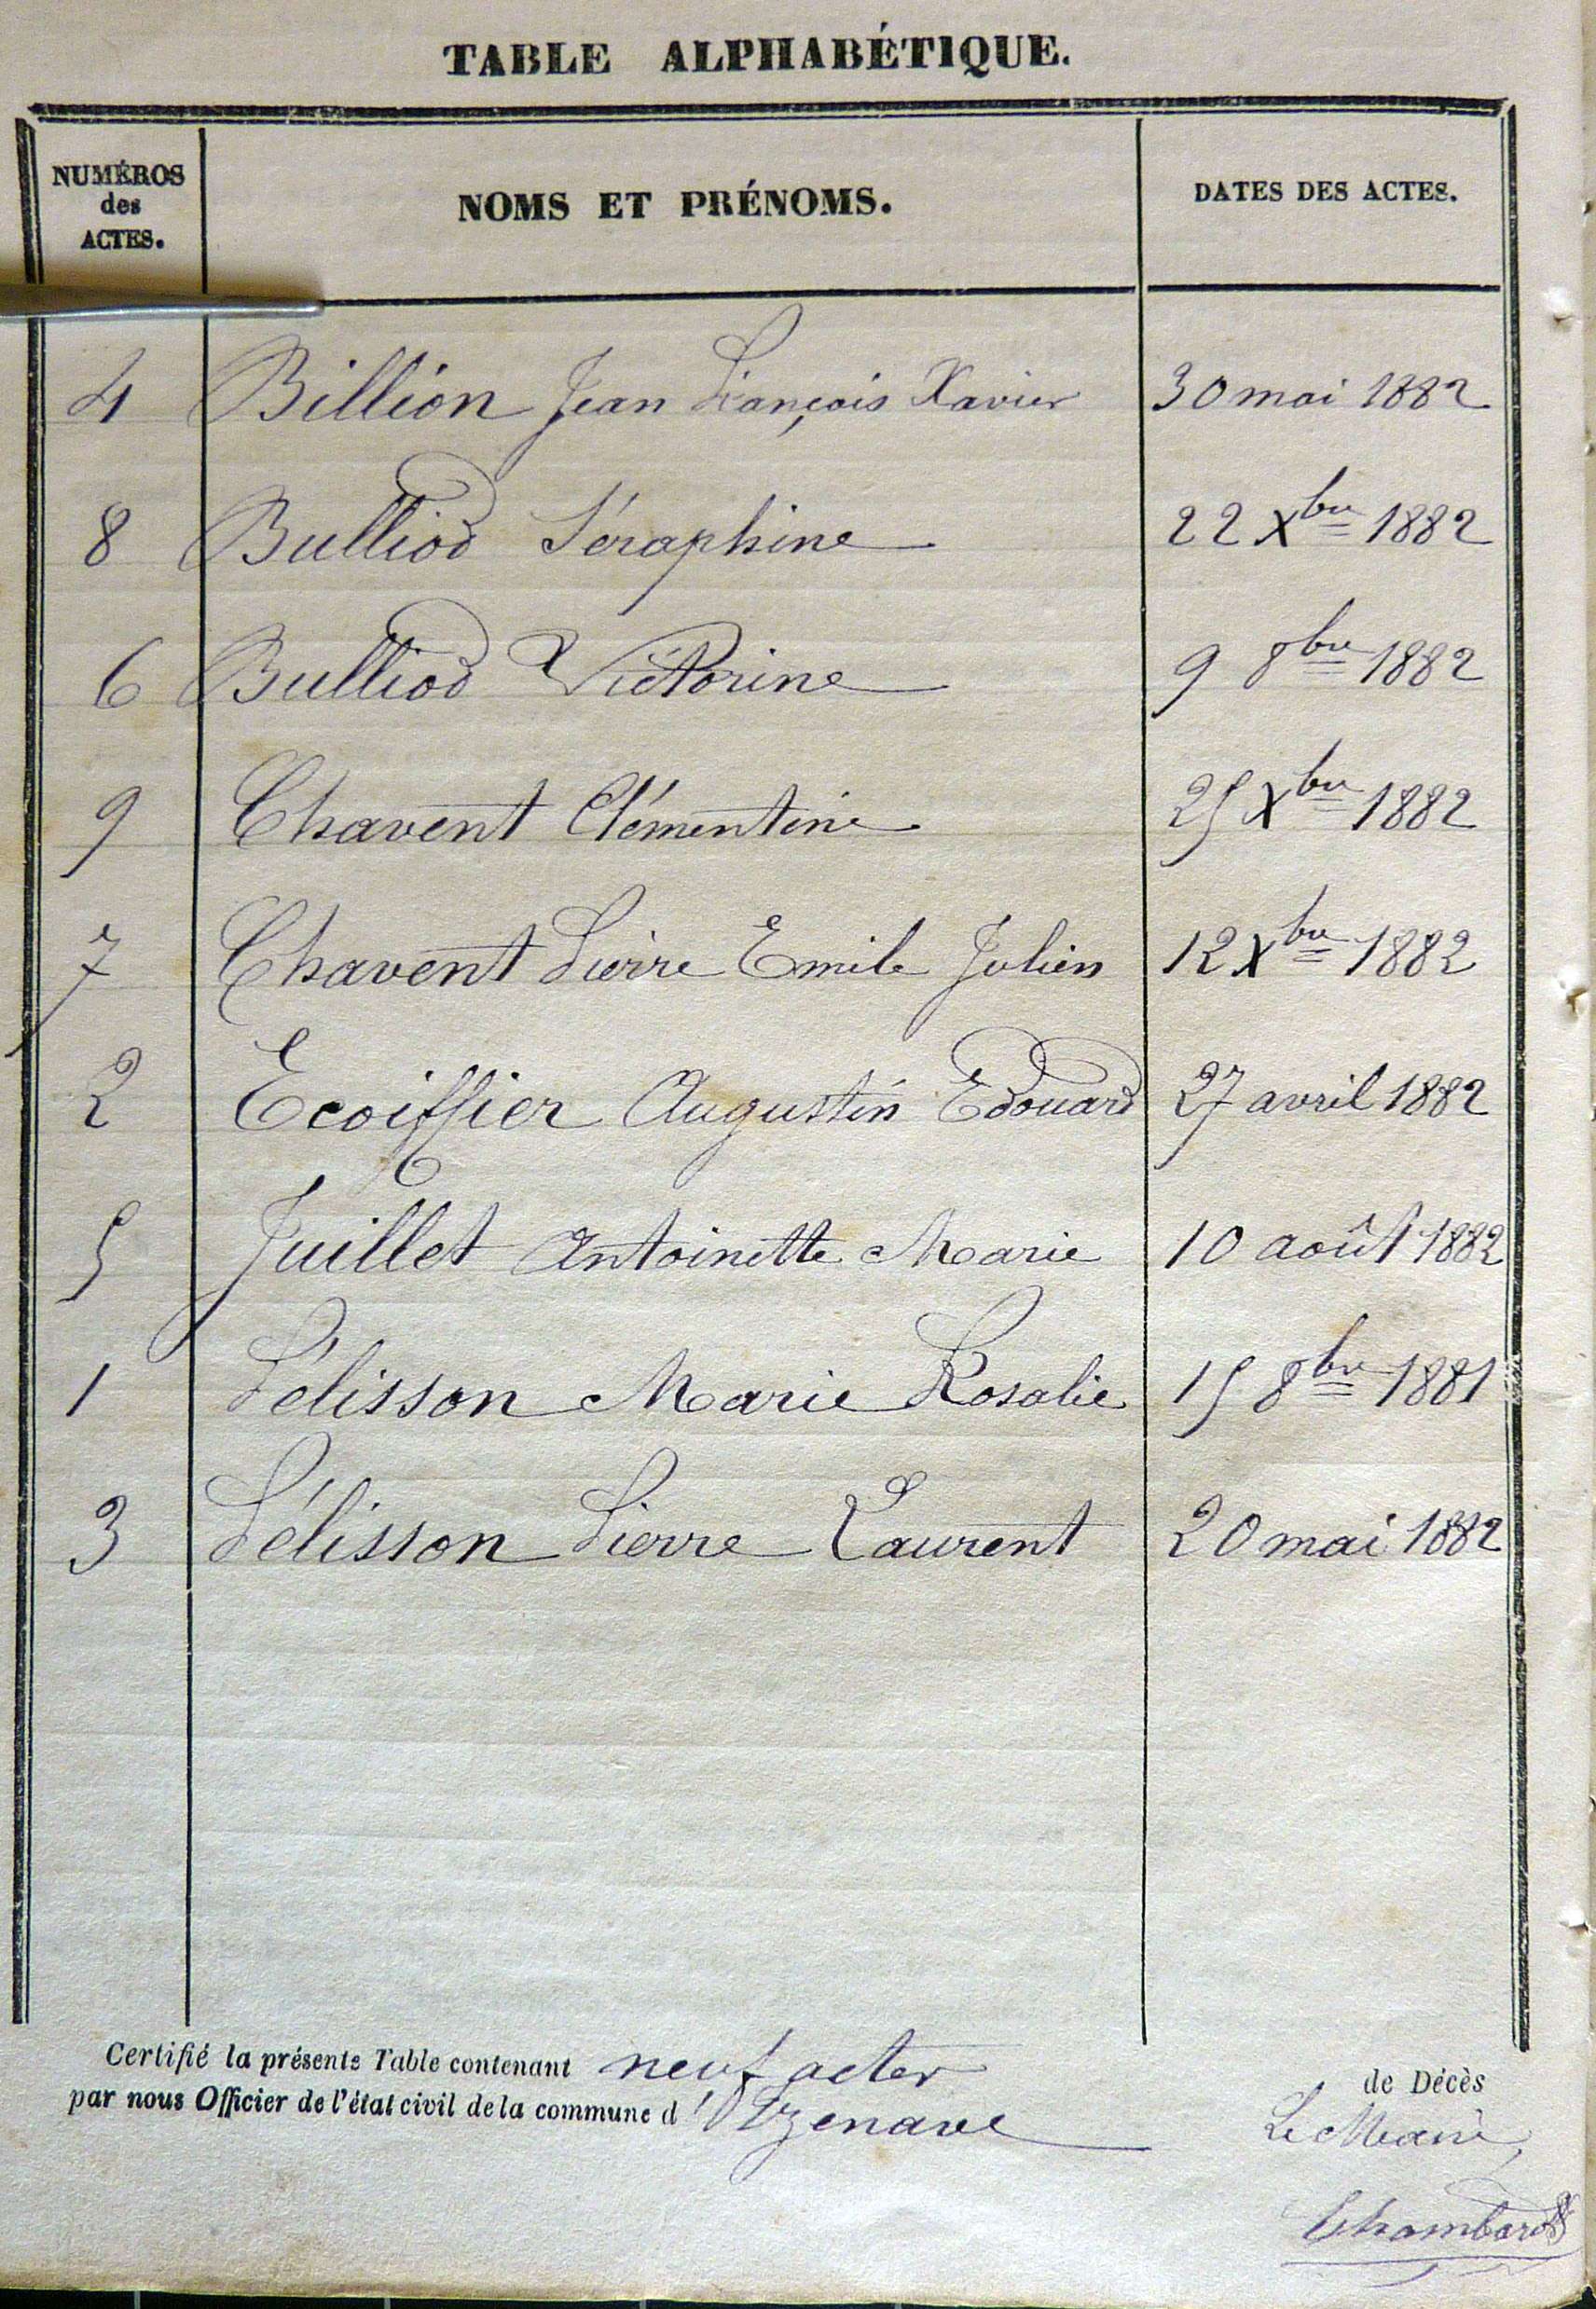 TABLE ALPHABÉTIQUE.
NUMÉROS des ACTES. NOMS ET PRÉNOMS. DATES DES ACTES.
4 Billion Jean François Xavier 30 mai 1882
8 Bulliod Séraphine 22 Xbre 1882
6 Bulliod Victorine 9 8bre 1882
9 Chavent Clémentine 25 Xbre 1882
7 Chavent Pierre Emile Julien 12 Xbre 1882
2 Ecoiffier Augustin Edouard 27 avril 1882
5 Juillet Antoinette Marie 10 août 1882
1 Pélisson Marie Rosalie 15 8bre 1881
3 Pélisson Pierre Laurent 20 mai 1882
Certifié la présente Table contenant neuf actes de Décès
par nous Officier de l'état civil de la commune d'Izenave
Le Maire,
Chambard